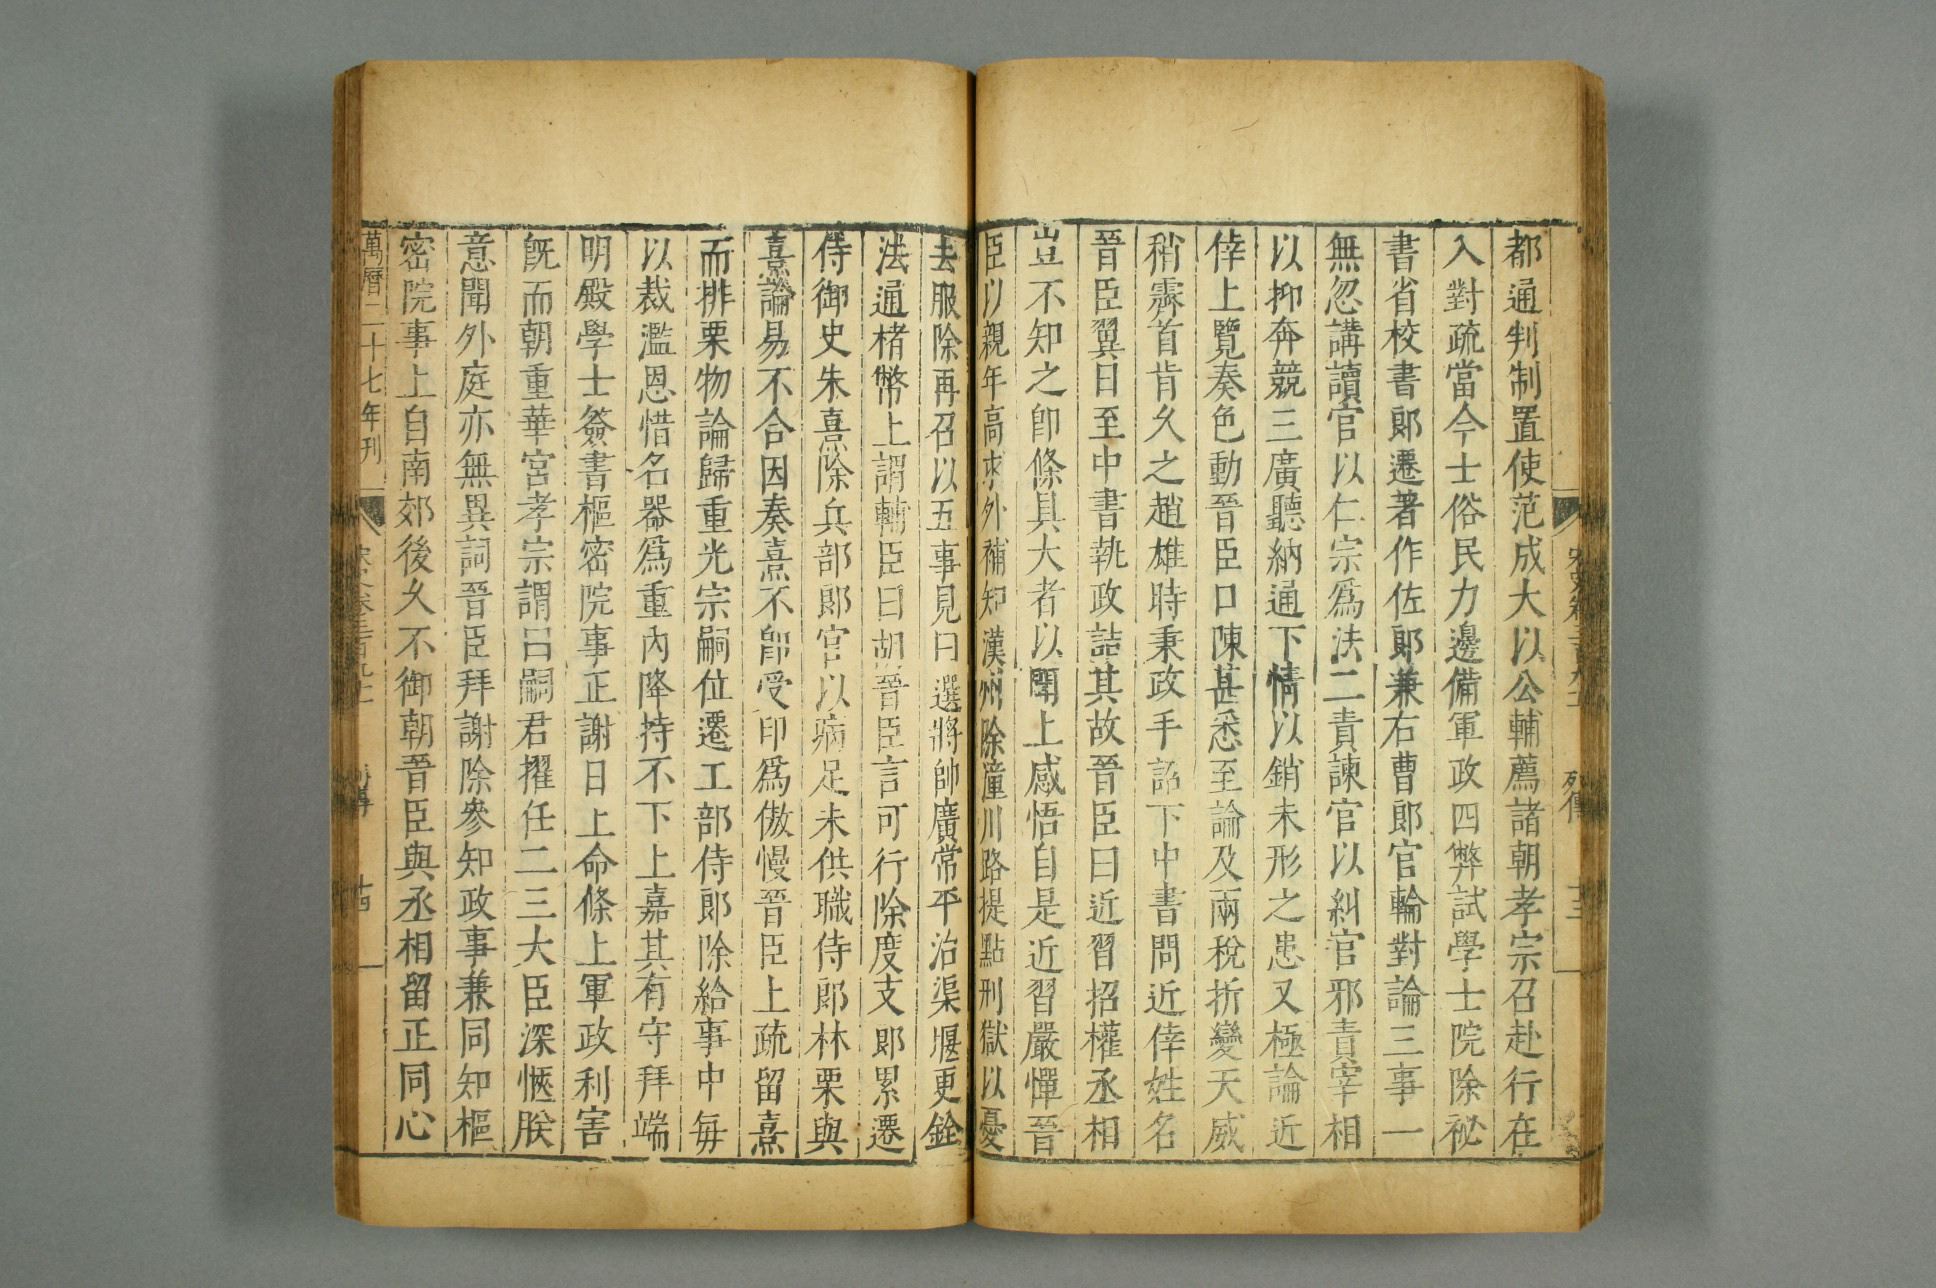 都通判制置使范成大以公輔薦諸朝孝宗召赴行在
入對疏當今士俗民力邊備軍政四弊試學士院除祕
書省校書郎遷著作佐郎兼右曹郎官輪對論三事一
無忽講讀官以仁宗爲法二責諫官以糾官邪責宰相
以抑奔競三廣聽納通下情以銷未形之患又極論近
倖上覽奏色動晉臣口陳甚悉至論及兩稅折變天威
稍霽首肯久之趙雄時秉政手詔下中書問近倖姓名
晉臣翼日至中書執政詰其故晉臣曰近習招權丞相
豈不知之卽條具大者以聞上感悟自是近習嚴憚晉
臣以親年高求外補知漢州除潼川路提點刑獄以憂
宋史卷三百九十一 列傳 十三
去服除再召以五事見曰選將帥廣常平治渠堰更銓
法通楮幣上謂輔臣曰胡晉臣言可行除度支郎累遷
侍御史朱熹除兵部郎官以病足未供職侍郎林栗與
熹論易不合因奏熹不卽受印爲傲慢晉臣上疏留熹
而排栗物論歸重光宗嗣位遷工部侍郎除給事中每
以裁濫恩惜名器爲重內降持不下上嘉其有守拜端
明殿學士簽書樞密院事正謝日上命條上軍政利害
旣而朝重華宮孝宗謂曰嗣君擢任二三大臣深愜朕
意聞外庭亦無異詞晉臣拜謝除參知政事兼同知樞
密院事上自南郊後久不御朝晉臣與丞相留正同心
萬曆二十七年刊 宋史卷三百九十一 列傳 十四